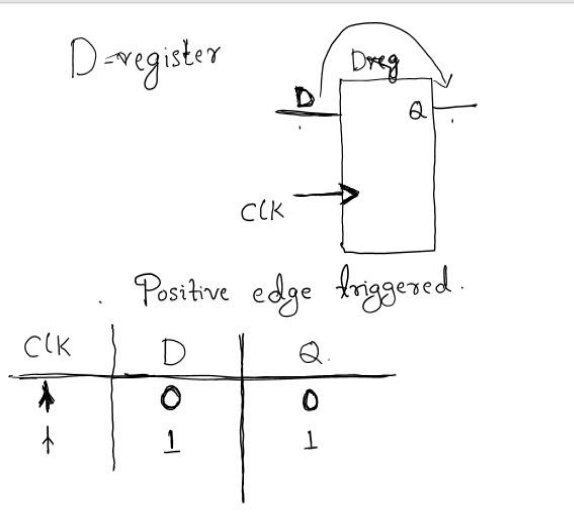 D-register
Dreg
D
Q
Clk
Positive edge triggered.
Clk D Q.
↑ 0 0
↑ 1 1